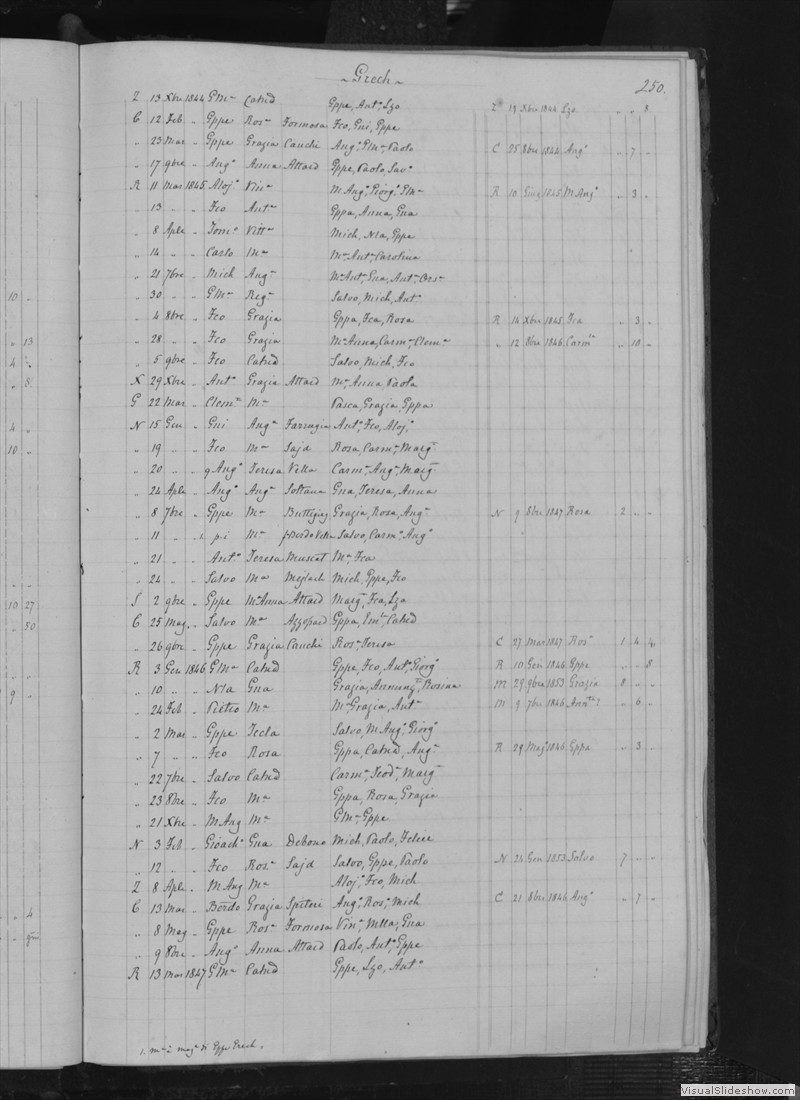 ~ Grech ~
250.
Z 13 Xbre 1844 GMa Catnd Gppe, Anto, Lzo Z 19 Xbre 1844 Lzo " " 8
C 12 Feb " Gppe Rosa Formosa Fco, Gni, Gppe
" 23 Mar " Gppe Grazia Cauchi Ango, GMa, Paolo C 25 8bre 1844 Ango " 7 "
" 17 9bre " Ango Anna Attard Gppe, Paolo, Savo
R 11 Mar 1845 Aloj Vina M Ango, Giorgo, GMa R 10 Giug 1845 M Ango " 3 "
" 13 " " Fco Anta Gppa, Anna, Gna
" 8 Aple " Tomo Vitta Mich, Nla, Gppe
" 14 " " Carlo Ma Ma Anta, Carolina
" 21 7bre " Mich Anga Ma Anta, Gna, Anta, Orsa
" 30 " " GMa Rega Salvo, Mich, Anto
" 4 8bre " Fco Grazia Gppa, Fca, Rosa R 14 Xbre 1845 Fca " 3 "
" 28 " " Fco Grazia Ma Anna, Carma, Clema " 12 8bre 1846 Carma " 10 "
" 5 9bre " Fco Catnd Salvo, Mich, Fco
X 29 Xbre " Anto Grazia Attard Ma Anna Paola
G 22 Mar " Clemo Ma Pasca, Grazia, Gppa
N 15 Gen " Gni Anga Farrugia Anto, Fco, Aloj
" 19 " " Fco Ma Sajd Rosa, Carma, Marga
" 20 " " Ango Teresa Vella Carma, Anga, Marga
" 24 Aple " Ango Anga Soltana Gna, Teresa, Anna
" 8 7bre " Gppe Ma Buttigieg Grazia, Rosa, Anga N 9 8bre 1847 Rosa 2 " "
" 11 " Ma Vella Salvo, Carmo, Ango
" 21 " " Anto Teresa Muscat Ma, Fca
" 24 " " Salvo Ma Mejlach Mich, Gppe, Fco
S 2 9bre " Gppe Ma Anna Attard Marga, Fca, Lza
C 25 Mag " Salvo Ma Azzopard Gppa, Catnd
" 26 9bre " Gppe Grazia Cauchi Rosa, Teresa C 27 Mar 1847 Rosa 1 4 4
R 3 Gen 1846 GMa Catnd Gppe, Fco, Anto, Giorgo R 10 Gen 1846 Gppe " " 8
" 10 " " Nla Gna Grazia, Annunza, Rosina M 29 9bre 1853 Grazia 8 " "
" 24 Feb " Pietro Ma Ma Grazia, Anta M 9 7bre 1846 " 6 "
" 2 Mar " Gppe Tecla Salvo, M Ango, Giorgo
" 7 " " Fco Rosa Gppa, Catnd, Anga R 29 Mag 1846 Gppa " 3 "
" 22 7bre " Salvo Catnd Carma, Teoda, Marga
" 23 8bre " Fco Ma Gppa, Rosa, Grazia
" 21 Xbre " M Ang Ma GMa, Gppe
N 3 Feb " Gioacho Gna Debono Mich, Paolo, Felice
" 12 " " Fco Rosa Sajd Salvo, Gppe, Paolo N 24 Gen 1853 Salvo 7 " "
Z 8 Aple " M Ang Ma Aloj, Fco, Mich
C 13 Mar " Bordo Grazia Spiteri Ango, Roso, Mich C 21 8bre 1846 Ango " 7 "
" 8 Mag " Gppe Rosa Formosa Vino, Mtta, Gna
" 9 8bre " Ango Anna Attard Paolo, Anto, Gppe
R 13 Mar 1847 GMa Catnd Gppe, Lzo, Anto
1. Ma 2 mogo di Gppe Grech.
10 "
" 13
4
" 8
4 "
10 "
10 27
" 50
9 "
" 4
VisualSlideshow.com